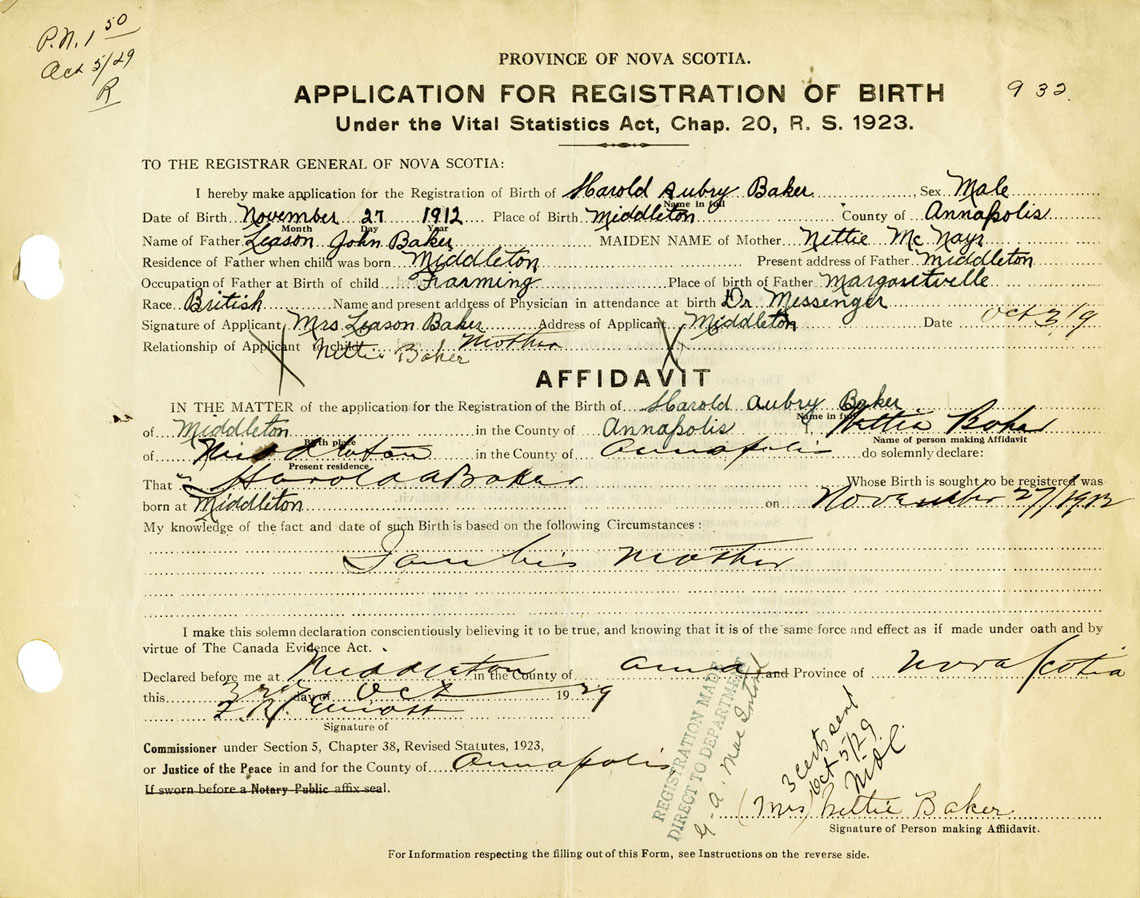 P.N. 1 50
Oct 5/29
R
PROVINCE OF NOVA SCOTIA.
932
APPLICATION FOR REGISTRATION OF BIRTH
Under the Vital Statistics Act, Chap. 20, R. S. 1923.
TO THE REGISTRAR GENERAL OF NOVA SCOTIA:
I hereby make application for the Registration of Birth of Harold Aubry Baker Sex Male
Name in full
Date of Birth November 27 1912 Place of Birth Middleton County of Annapolis
Month Day Year
Name of Father Leason John Baker MAIDEN NAME of Mother Nettie Mc Nayr
Residence of Father when child was born Middleton Present address of Father Middleton
Occupation of Father at Birth of child Farming Place of birth of Father Margaretville
Race British Name and present address of Physician in attendance at birth Dr Messenger
Signature of Applicant Mrs Leason Baker Address of Applicant Middleton Date Oct 3/9
Relationship of Applicant to child Mother
Nettie Baker
AFFIDAVIT
IN THE MATTER of the application for the Registration of the Birth of Harold Aubry Baker
Name in full
of Middleton in the County of Annapolis I, Nettie Baker
Birth place Name of person making Affidavit
of Middleton in the County of Annapolis do solemnly declare:
Present residence
That Harold A Baker Whose Birth is sought to be registered was
born at Middleton on November 27/1912
My knowledge of the fact and date of such Birth is based on the following Circumstances:
I am his Mother
I make this solemn declaration conscientiously believing it to be true, and knowing that it is of the same force and effect as if made under oath and by
virtue of The Canada Evidence Act.
Declared before me at Middleton in the County of Anna and Province of Nova Scotia
this 3rd day of Oct 1929
Signature of
Commissioner under Section 5, Chapter 38, Revised Statutes, 1923,
or Justice of the Peace in and for the County of Annapolis
If sworn before a Notary Public affix seal.
REGISTRATION MADE
DIRECT TO DEPARTMENT
3 certs sent
Oct 5/29
(Mrs) Nettie Baker
Signature of Person making Affidavit.
For Information respecting the filling out of this Form, see Instructions on the reverse side.